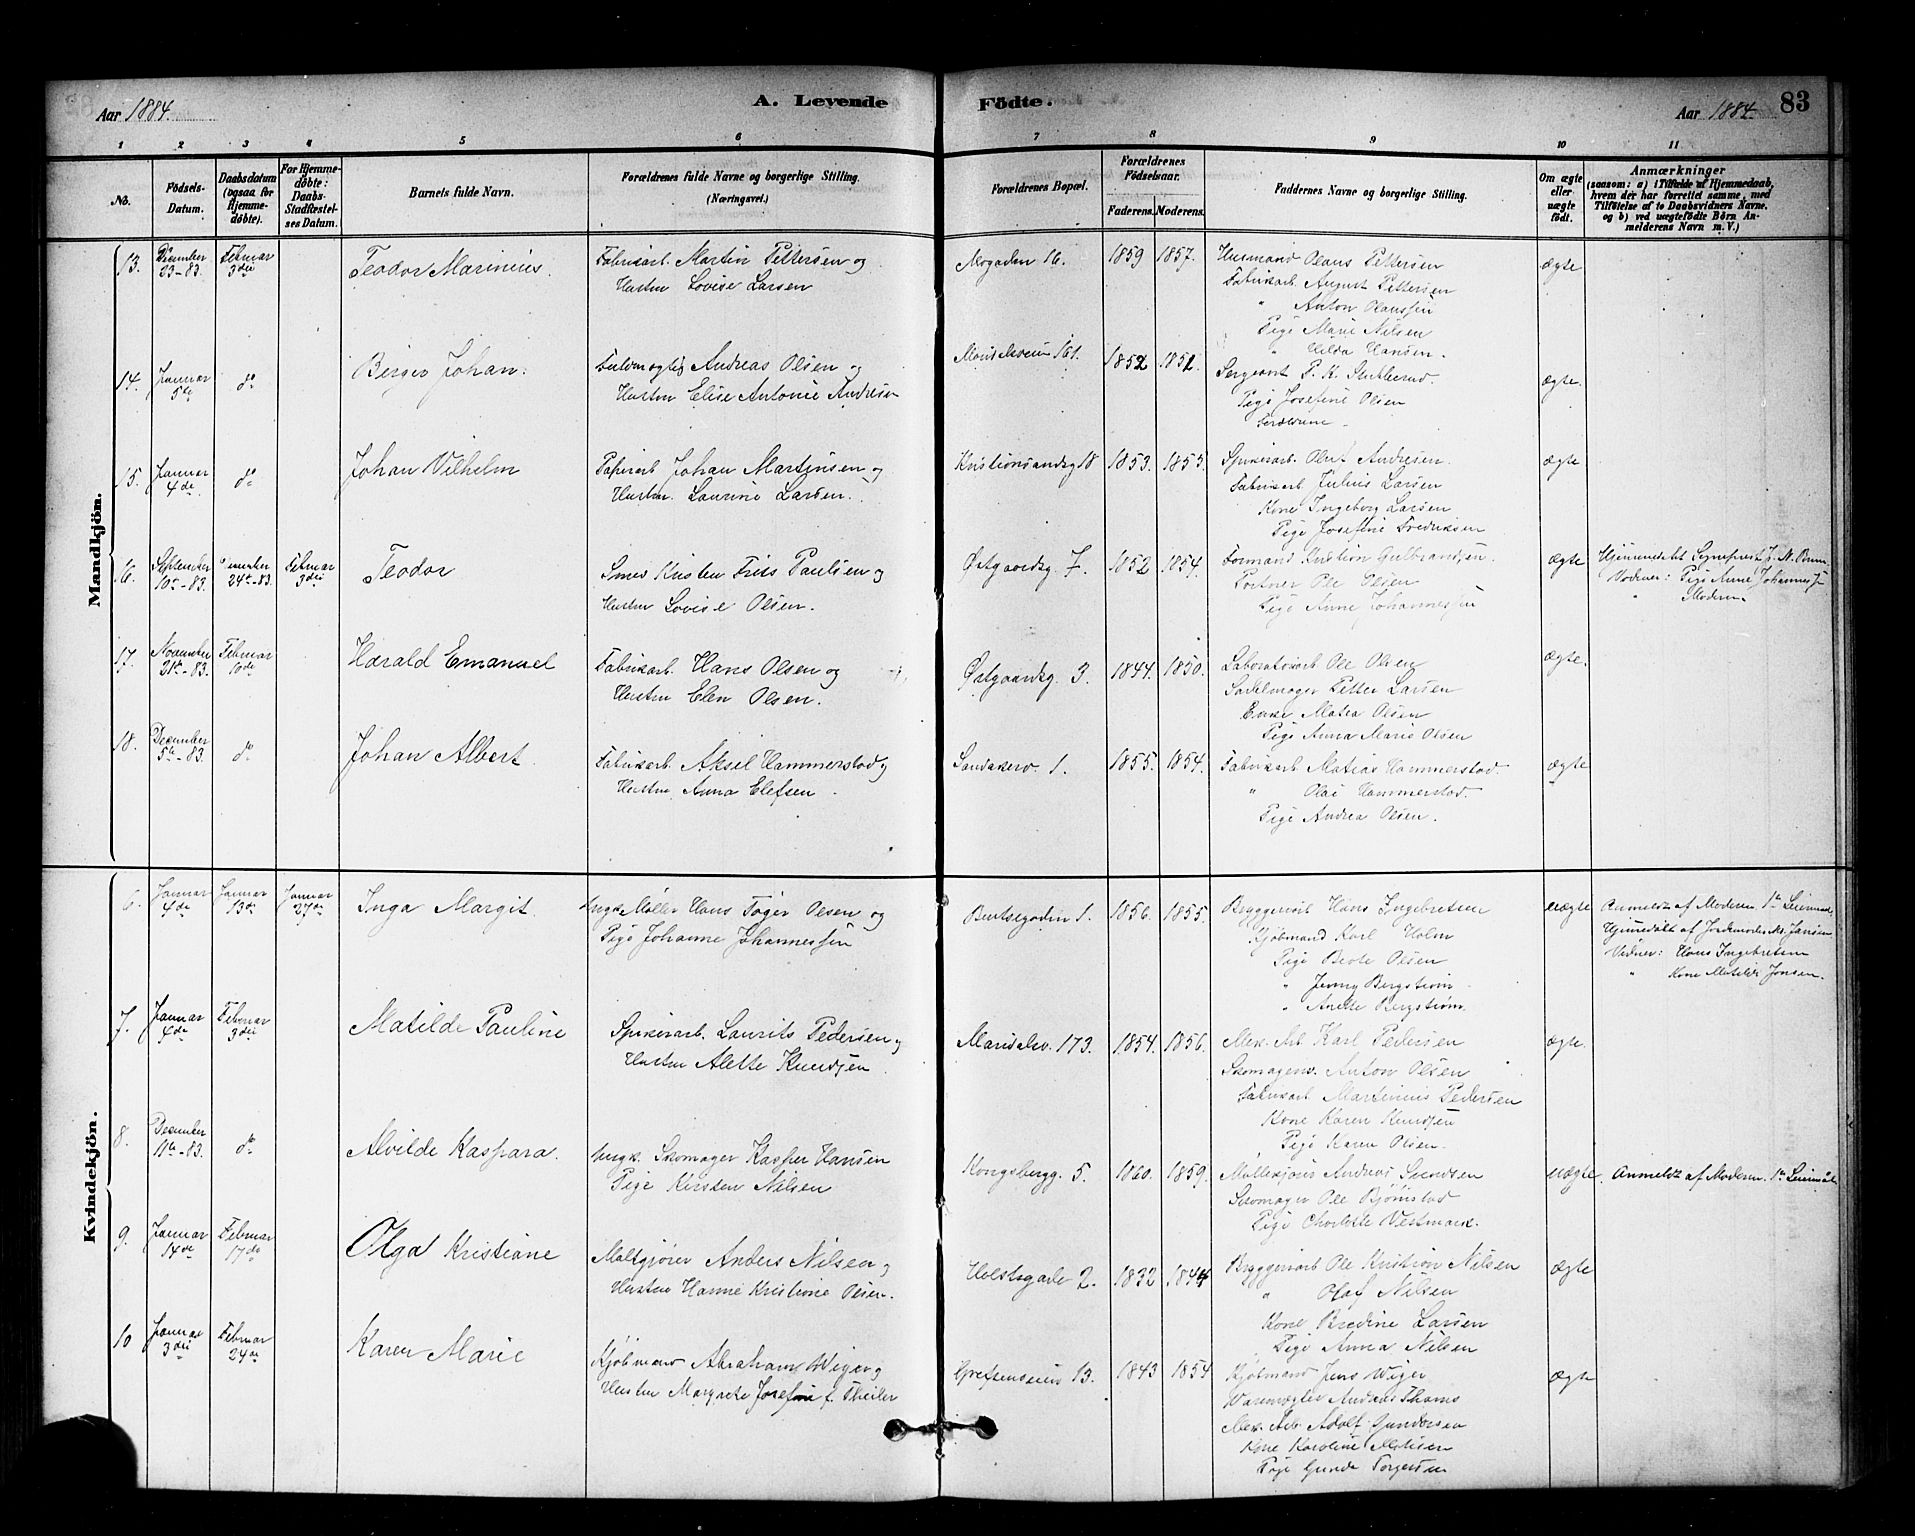 Aar 1884.
A. Levende
Födte.
Aar 1884
83
1 2 3 4 5 6 7 8 9 10 11
No.
Födsels-Datum.
Daabsdatum (ogsaa for Hjemmedöbte).
For Hjemmedöbte: Daabs-Stadfæstelses Datum.
Barnets fulde Navn.
Forældrenes fulde Navne og borgerlige Stilling. (Næringsvei.)
Forældrenes Bopæl.
Forældrenes Födselsaar.
Faderens. Moderens.
Faddernes Navne og borgerlige Stilling.
Om ægte eller uægte födt.
Anmærkninger
(saasom: a) i Tilfælde af Hjemmedaab, hvem der har forrettet samme, med Tilföielse af to Daabsvidners Navne. og b) ved uægtefödte Börn Anmelderens Navn m. V.)
Mandkjön.
13. December 23-83. Februar 3die
Teodor Marinius.
Fabrikarb. Martin Pettersen og
Hustru Lovise Larsen
Mogaden 16. 1859 1857.
Husmand Olaus Pettersen
Fabrikarb. August Pettersen
" Anton Olaussen
Pige Marie Nilsen
" Hilda Hansen.
ægte
14. Januar 5te do
Birger Johan.
Fuldmægtig Andreas Olsen og
Hustru Elise Antonie Andresen
161. 1852 1852.
Sergeant P. K. Stubberud.
Pige Josefine Olsen
Forældrene.
ægte.
15. Januar 4de do
Johan Vilhelm
Papirarb Johan Martinsen og
Hustru. Laurine Larsen.
Kristiansandsg 18 1853. 1855.
Spikerarb. Andresen.
Fabrikarb Julius Larsen
Kone Ingeborg Larsen
Pige Josefine Fredriksen
ægte
16. September 10de-83. December 24de-83. Februar 3die
Teodor
Smed Kristen Friis Paulsen og
Hustru Lovise Olsen.
Østgaardsg 7. 1852 1854.
Formand Kristian Gulbrandsen.
Portner Ole Olsen
Pige Anne Johannessen
ægte
Hjemmedøbt Sogneprest J. N. Brun
Vidner: Pige Anne Johannes
" Moderen.
17. November 21de-83. Februar 10de
Harald Emanuel
Fabrikarb. Hans Olsen og
Hustru Elen Olsen.
Østgaardsg. 3. 1844. 1850.
Laboratoriarb Ole Olsen
Sadelmager Petter Larsen
Enke Matea Olsen
Pige Anna Marie Olsen
ægte.
18. December 5te-83. do
Johan Albert.
Fabrikarb. Aksel Hammerstad og
Hustru Anna Elefsen.
Sandakerv. 1. 1855. 1854.
Fabrikarb Matias Hammerstad.
" Olai Hammerstad.
Pige Andrea Olsen.
ægte
Kvindekjön.
6. Januar 4de Januar 13de Januar 27de
Inga Margit
Ungk Møller Hans Toger Olsen og
Pige Johanne Johannessen
Bentsegaden 1. 1856. 1855.
Byggeriarb Hans Ingebretsen
Kjøbmand Karl Holm
Pige Berte Olsen
" Jenny Bergstrøm
" Anette Bergstrøm.
uægte
Anmeldt af Moderen. 1ste Leiermaal
Hjemmedøbt af Jordemoder Jansen
Vidner: Hans Ingebretsen
" Kone Matilde Jonsen.
7. Januar 4de Februar 3die
Matilde Pauline
Spikerarb. Laurits Pedersen og
Hustru Alette Knudsen
Maridalsv. 173. 1854. 1856.
Mek. Arb Karl Pedersen
Skomagersv. Anton Olsen
Fabrikarb Martinius Pedersen
Kone Karen Knudsen
Pige Karen Olsen.
ægte.
8. December 11te-83. do
Alvilde Kaspara.
Ungk. Skomager Kasper Hansen
Pige Kirsten Nilsen
Kongsbergg. 5. 1860. 1859.
Andreas Svendsen
Skomager Ole Bjørnstad
Pige Charlotte Vestmark.
uægte.
Anmeldt af Moderen. 1ste Leiermaal
9. Januar 14de Februar 17de
Olga Kristiane
Maltgjører Anders Nilsen og
Hustru Hanne Kristiane Olsen.
Holstsgade 2. 1832 1844
Bryggeriarb Ole Kristian Nilsen
" Olaf Nilsen
Kone Bredine Larsen
Pige Anna Nilsen
ægte
10 Januar 3die Februar 24de
Karen Marie
Kjøbmand Abraham Wiger og
Hustru Margrete Josefine f. Theiler
Grefsenveien 13. 1843 1854
Kjøbmand Jens Wiger
Andreas Thoms
Mek. Arb. Adolf Gundersen
Kone Karoline Madsen
Pige Gunda Torgersen
ægte